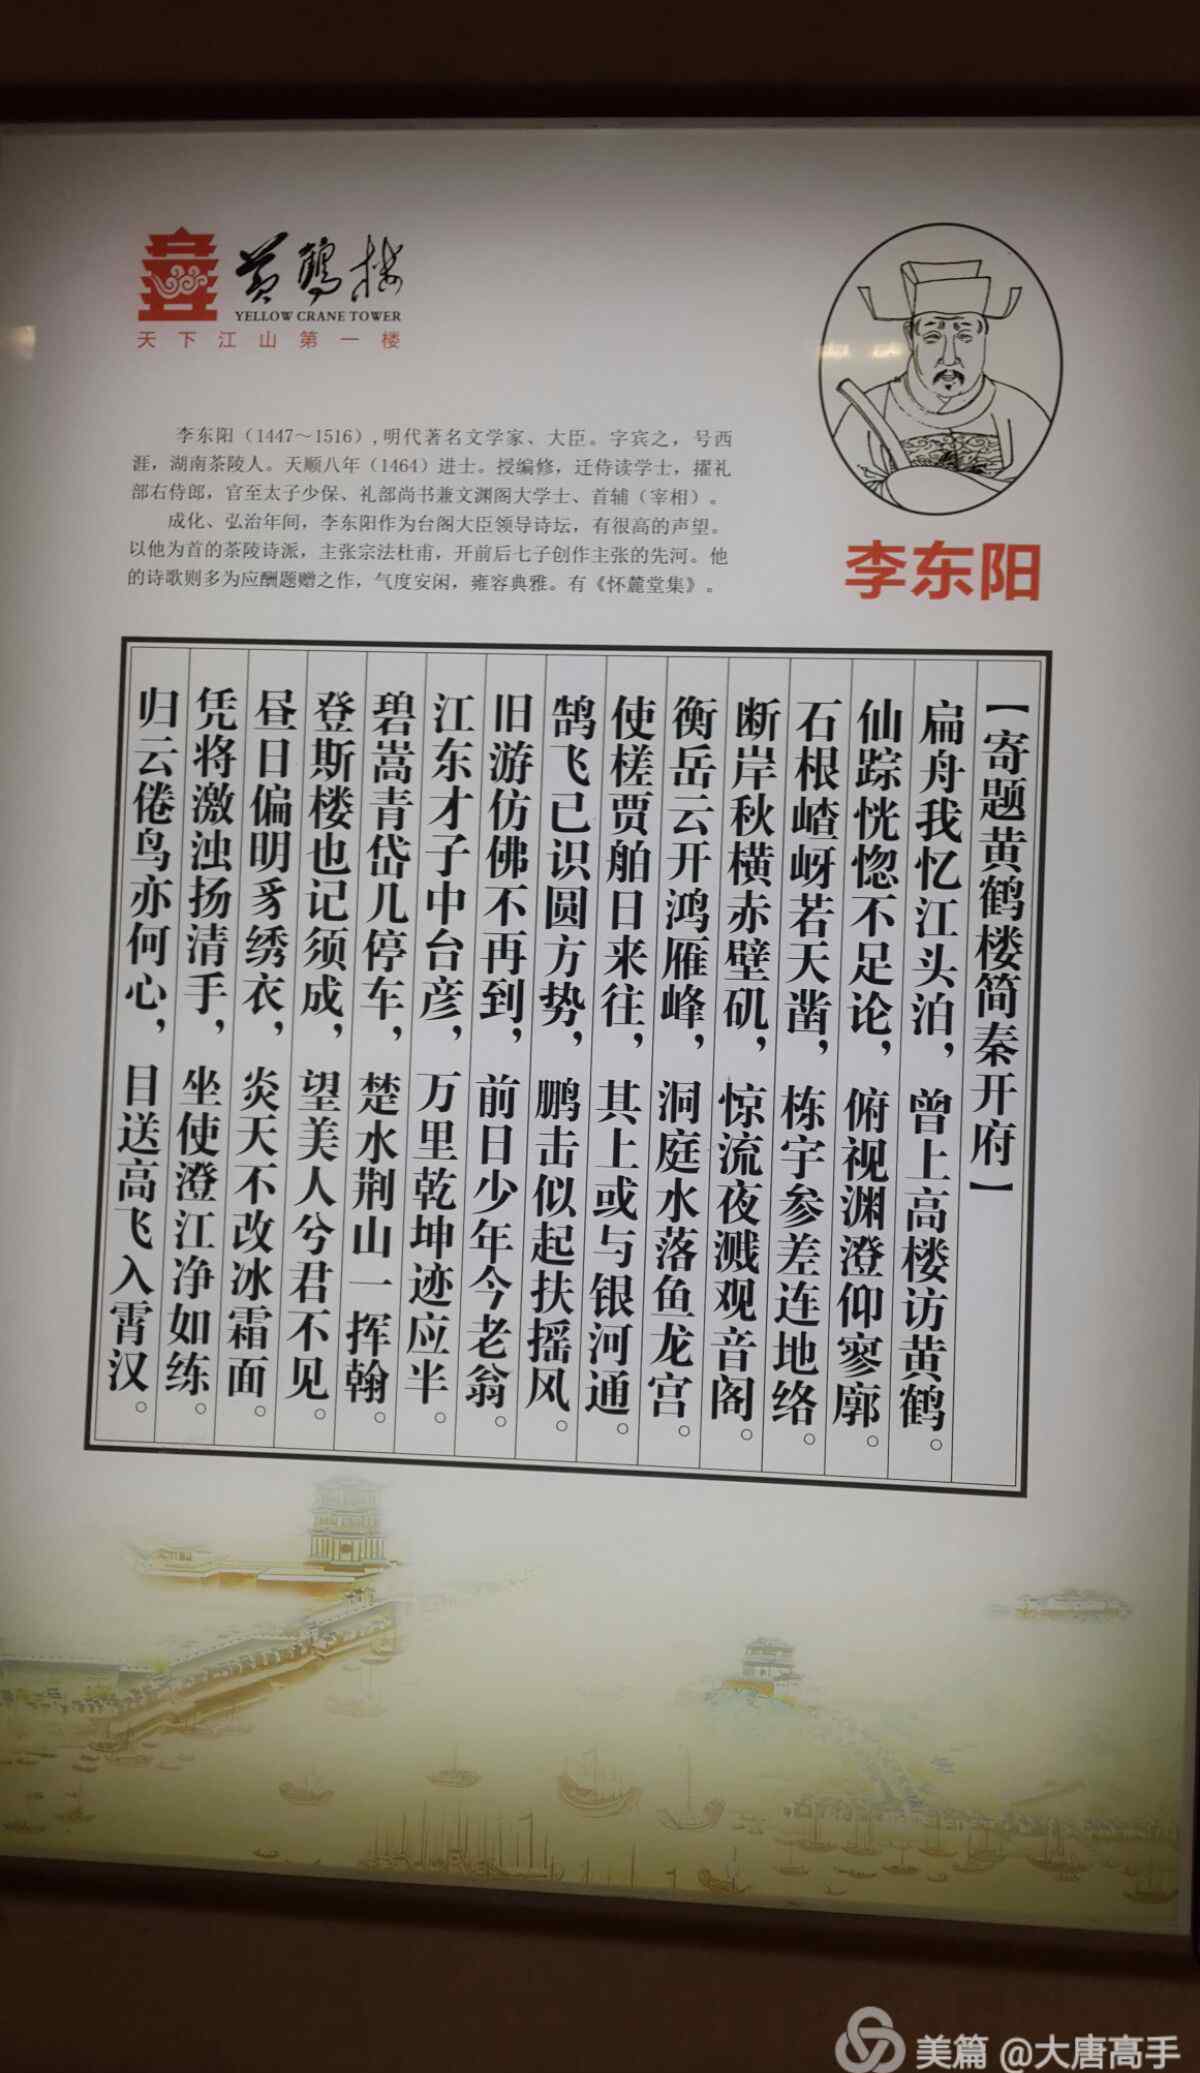 黄鹤楼
YELLOW CRANE TOWER
天下江山第一楼
李东阳（1447～1516）,明代著名文学家、大臣。字宾之，号西
涯，湖南茶陵人。天顺八年（1464）进士。授编修，迁侍读学士，擢礼
部右侍郎，官至太子少保、礼部尚书兼文渊阁大学士、首辅（宰相）。
成化、弘治年间，李东阳作为台阁大臣领导诗坛，有很高的声望。
以他为首的茶陵诗派，主张宗法杜甫，开前后七子创作主张的先河。他
的诗歌则多为应酬题赠之作，气度安闲，雍容典雅。有《怀麓堂集》。
李东阳
【寄题黄鹤楼简秦开府】
扁舟我忆江头泊，曾上高楼访黄鹤。
仙踪恍惚不足论，俯视渊澄仰寥廓。
石根嵖岈若天凿，栋宇参差连地络。
断岸秋横赤壁矶，惊流夜溅观音阁。
衡岳云开鸿雁峰，洞庭水落鱼龙宫。
使槎贾舶日来往，其上或与银河通。
鹄飞已识圆方势，鹏击似起扶摇风。
旧游仿佛不再到，前日少年今老翁。
江东才子中台彦，万里乾坤迹应半。
碧嵩青岱几停车，楚水荆山一挥翰。
登斯楼也记须成，望美人兮君不见。
昼日偏明豸绣衣，炎天不改冰霜面。
凭将激浊扬清手，坐使澄江净如练。
归云倦鸟亦何心，目送高飞入霄汉。
美篇 @大唐高手